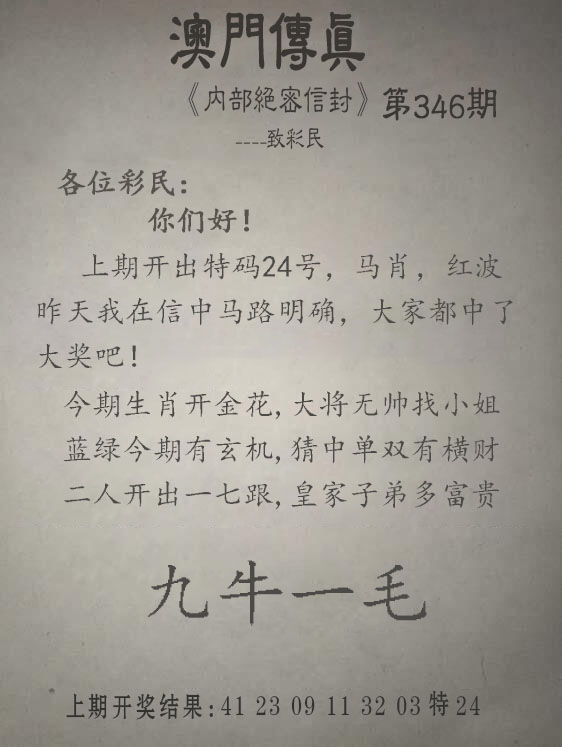 澳門傳眞
《内部絕密信封》第346期
----致彩民
各位彩民：
你们好！
上期开出特码24号，马肖，红波
昨天我在信中马路明确，大家都中了
大奖吧！
今期生肖开金花,大将无帅找小姐
蓝绿今期有玄机,猜中单双有横财
二人开出一七跟,皇家子弟多富贵
九牛一毛
上期开奖结果:41 23 09 11 32 03 特 24